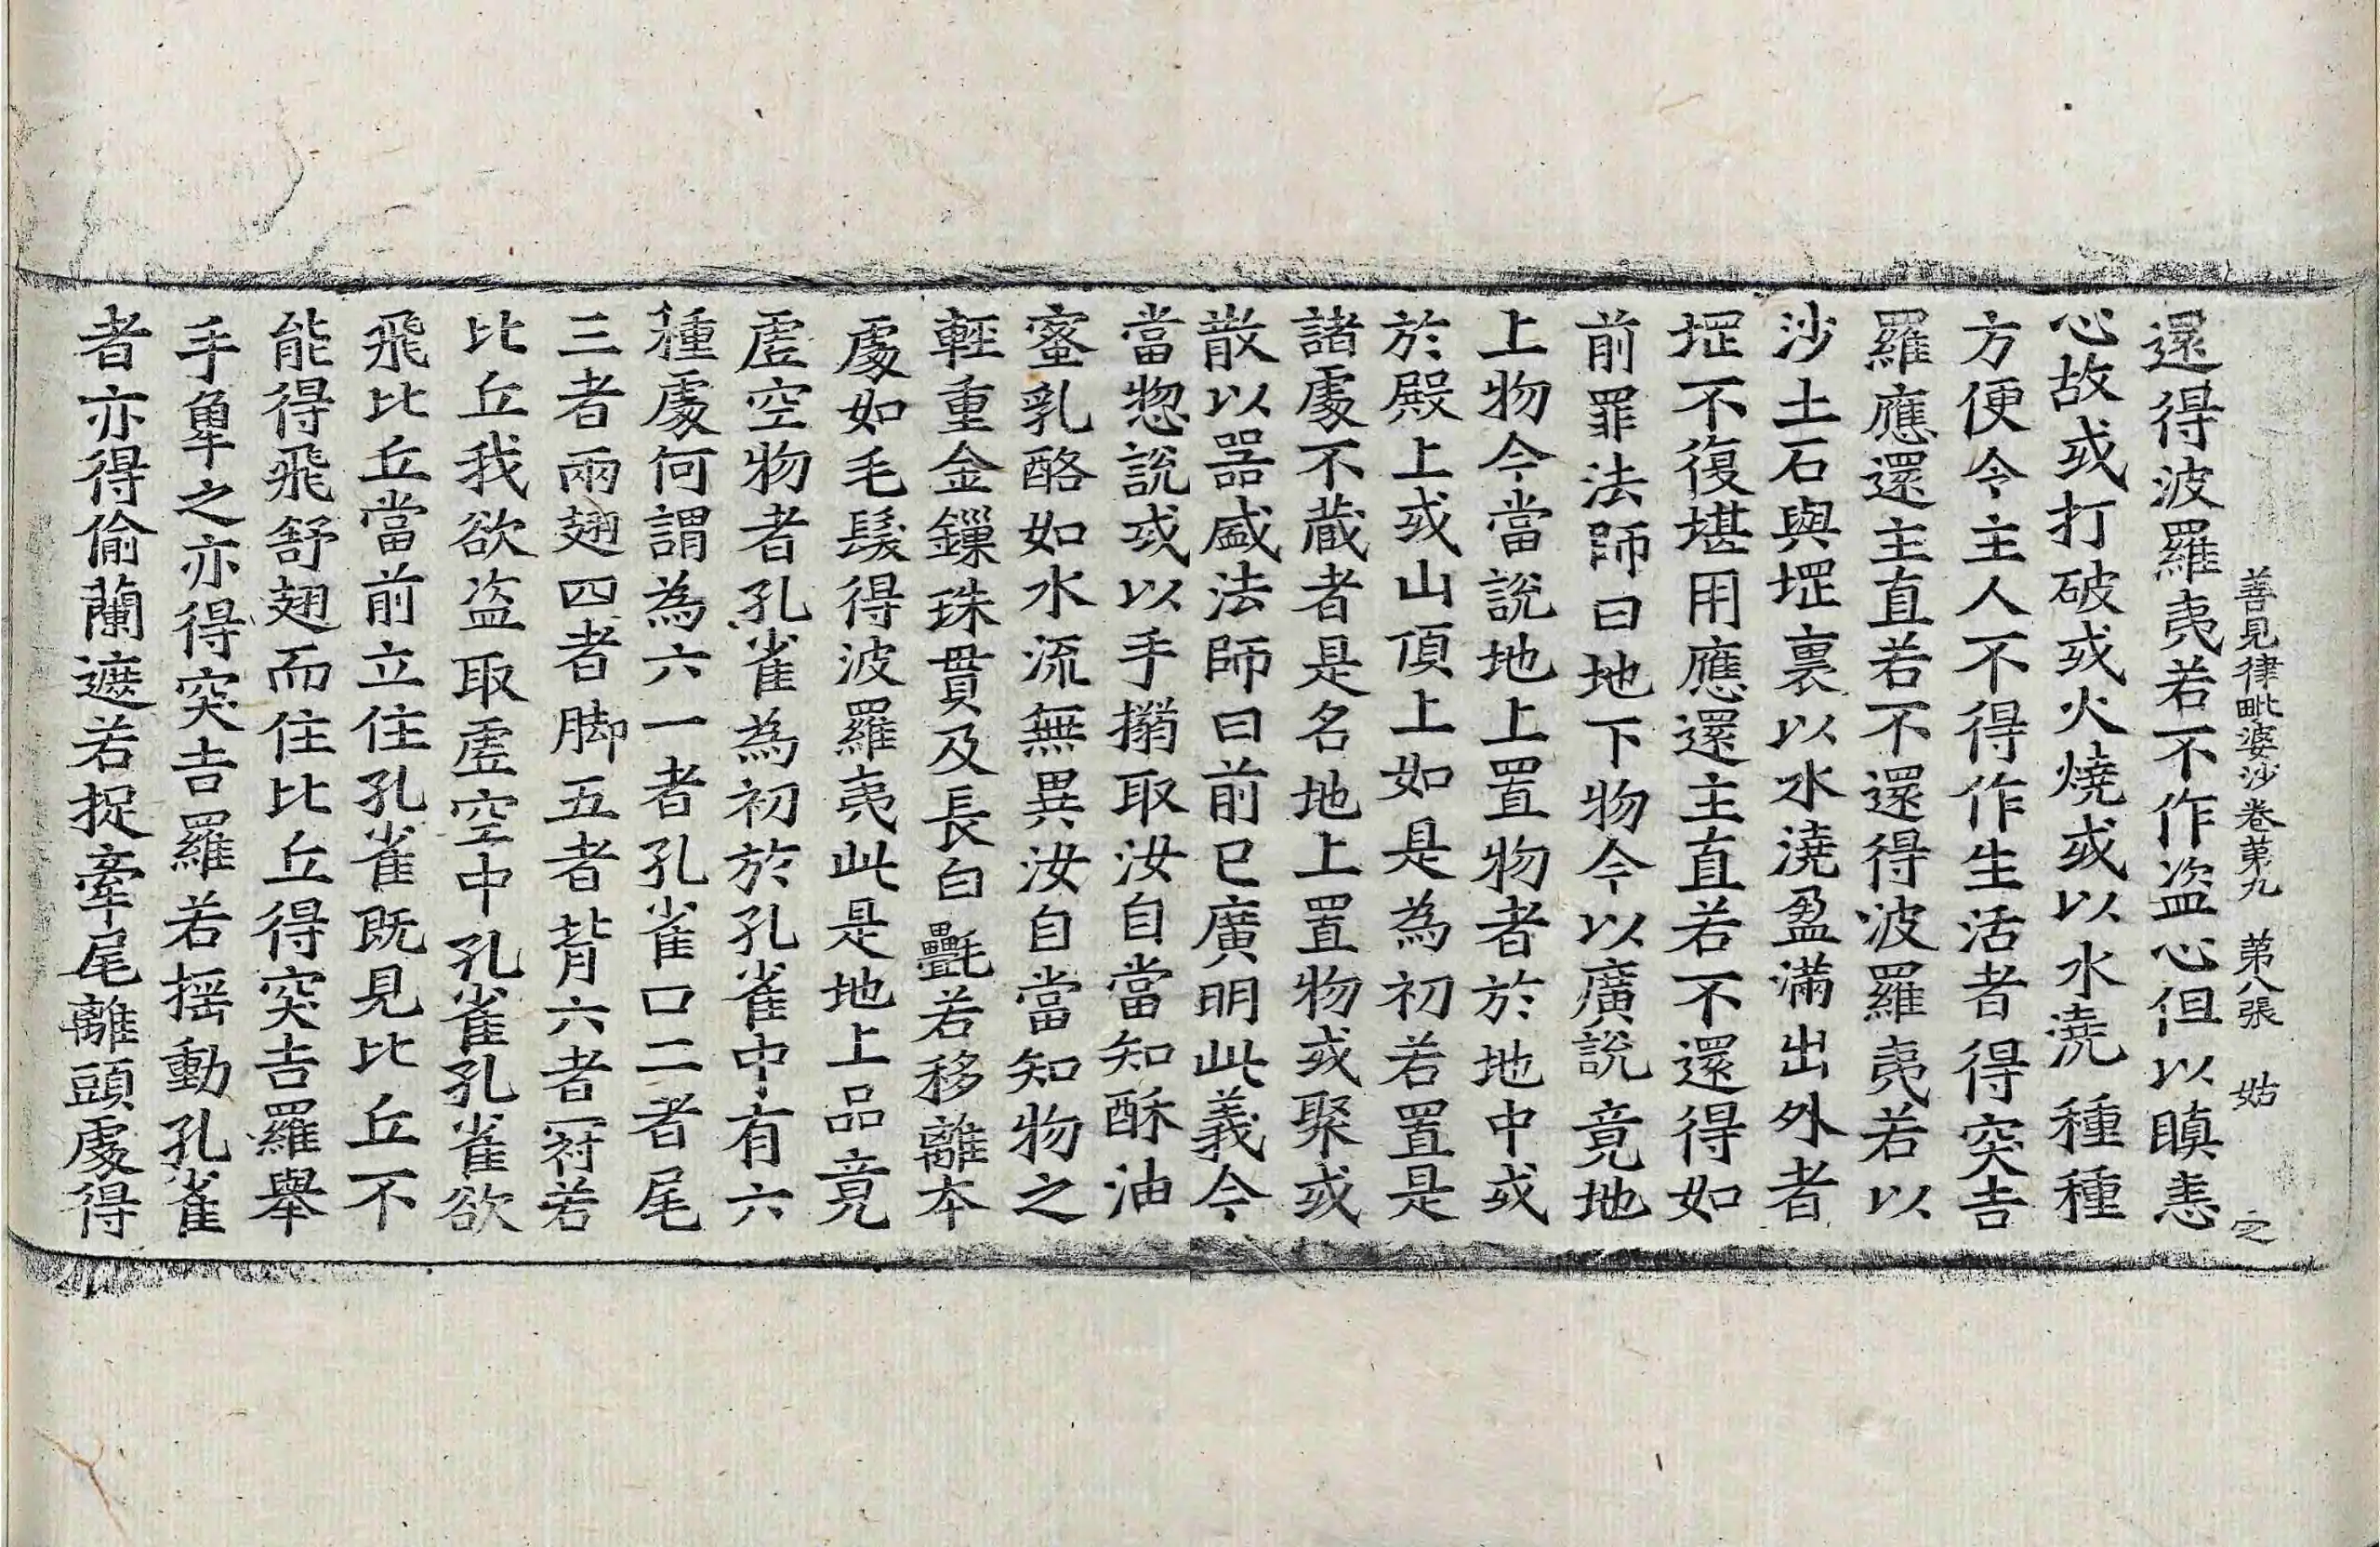 善見律毗婆沙卷第九 第八張 姑 之
還得波羅夷若不作盗心但以瞋恚
心故或打破或火燒或以水澆種種
方便令主人不得作生活者得突吉
羅應還主直若不還得波羅夷若以
沙土石與堽裏以水澆盈滿出外者
堽不復堪用應還主直若不還得如
前罪法師曰地下物今以廣說竟地
上物今當說地上置物者於地中或
於殿上或山頂上如是為初若置是
諸處不蔵者是名地上置物或聚或
散以噐盛法師曰前已廣明此義今
當惣說或以手搊取汝自當知酥油
蜜乳酪如水流無異汝自當知物之
輕重金鏁珠貫及長白㲲若移離本
處如毛髮得波羅夷此是地上品竟
虛空物者孔雀為初於孔雀中有六
種處何謂為六一者孔雀口二者尾
三者兩翅四者脚五者背六者冠若
比丘我欲盗取虛空中孔雀孔雀欲
飛比丘當前立住孔雀既見比丘不
能得飛舒翅而住比丘得突吉羅舉
手牽之亦得突吉羅若搖動孔雀
者亦得偷蘭遮若捉牽尾離頭處得